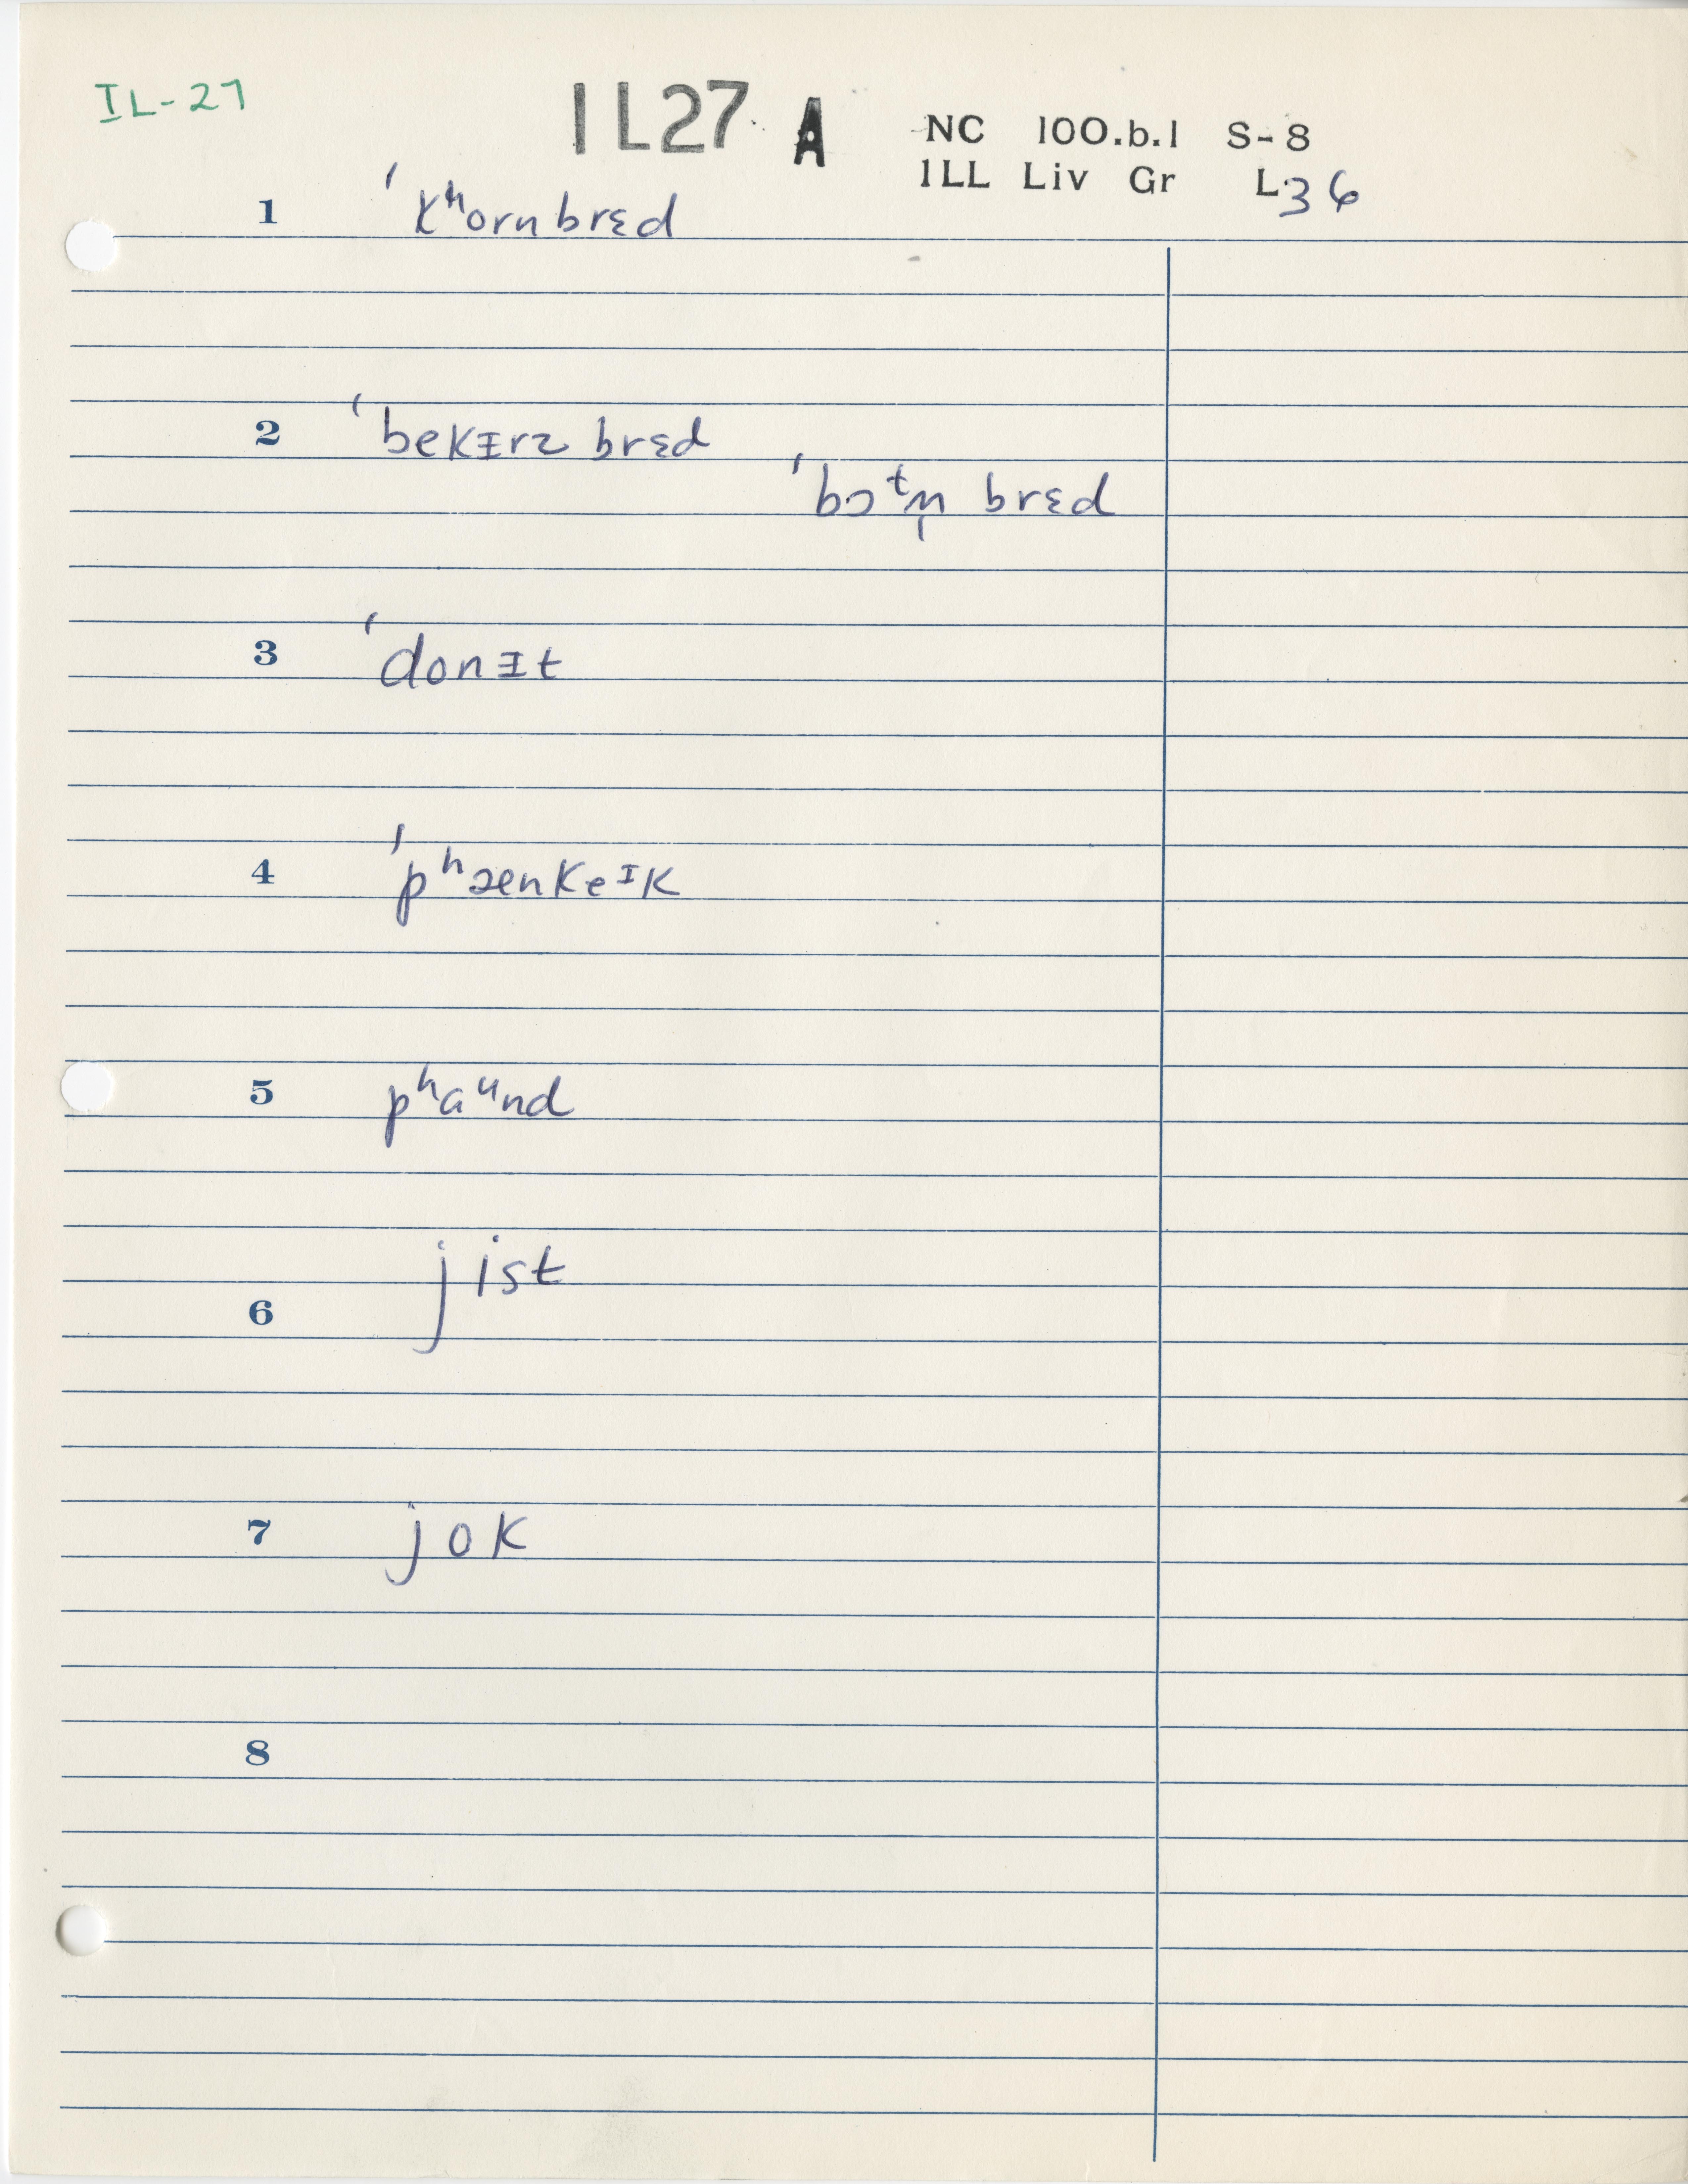 IL-27
IL27 A
NC 100.b.1 S-8
ILL Liv Gr L36
1 ˈkʰornbrɛd
2 ˈbekᵻrz brɛd
ˈbɔtn̩ brɛd
3 ˈdonᵻt
4 ˈpʰænkeᶦk
5 pʰaᵘnd
6 jist
7 jok
8